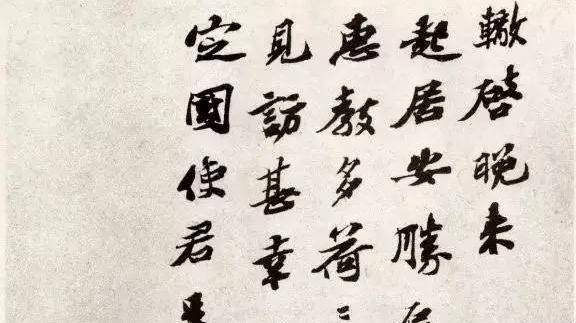 轍啓晚来
起居安勝
惠教多荷
見訪甚幸
定國使君